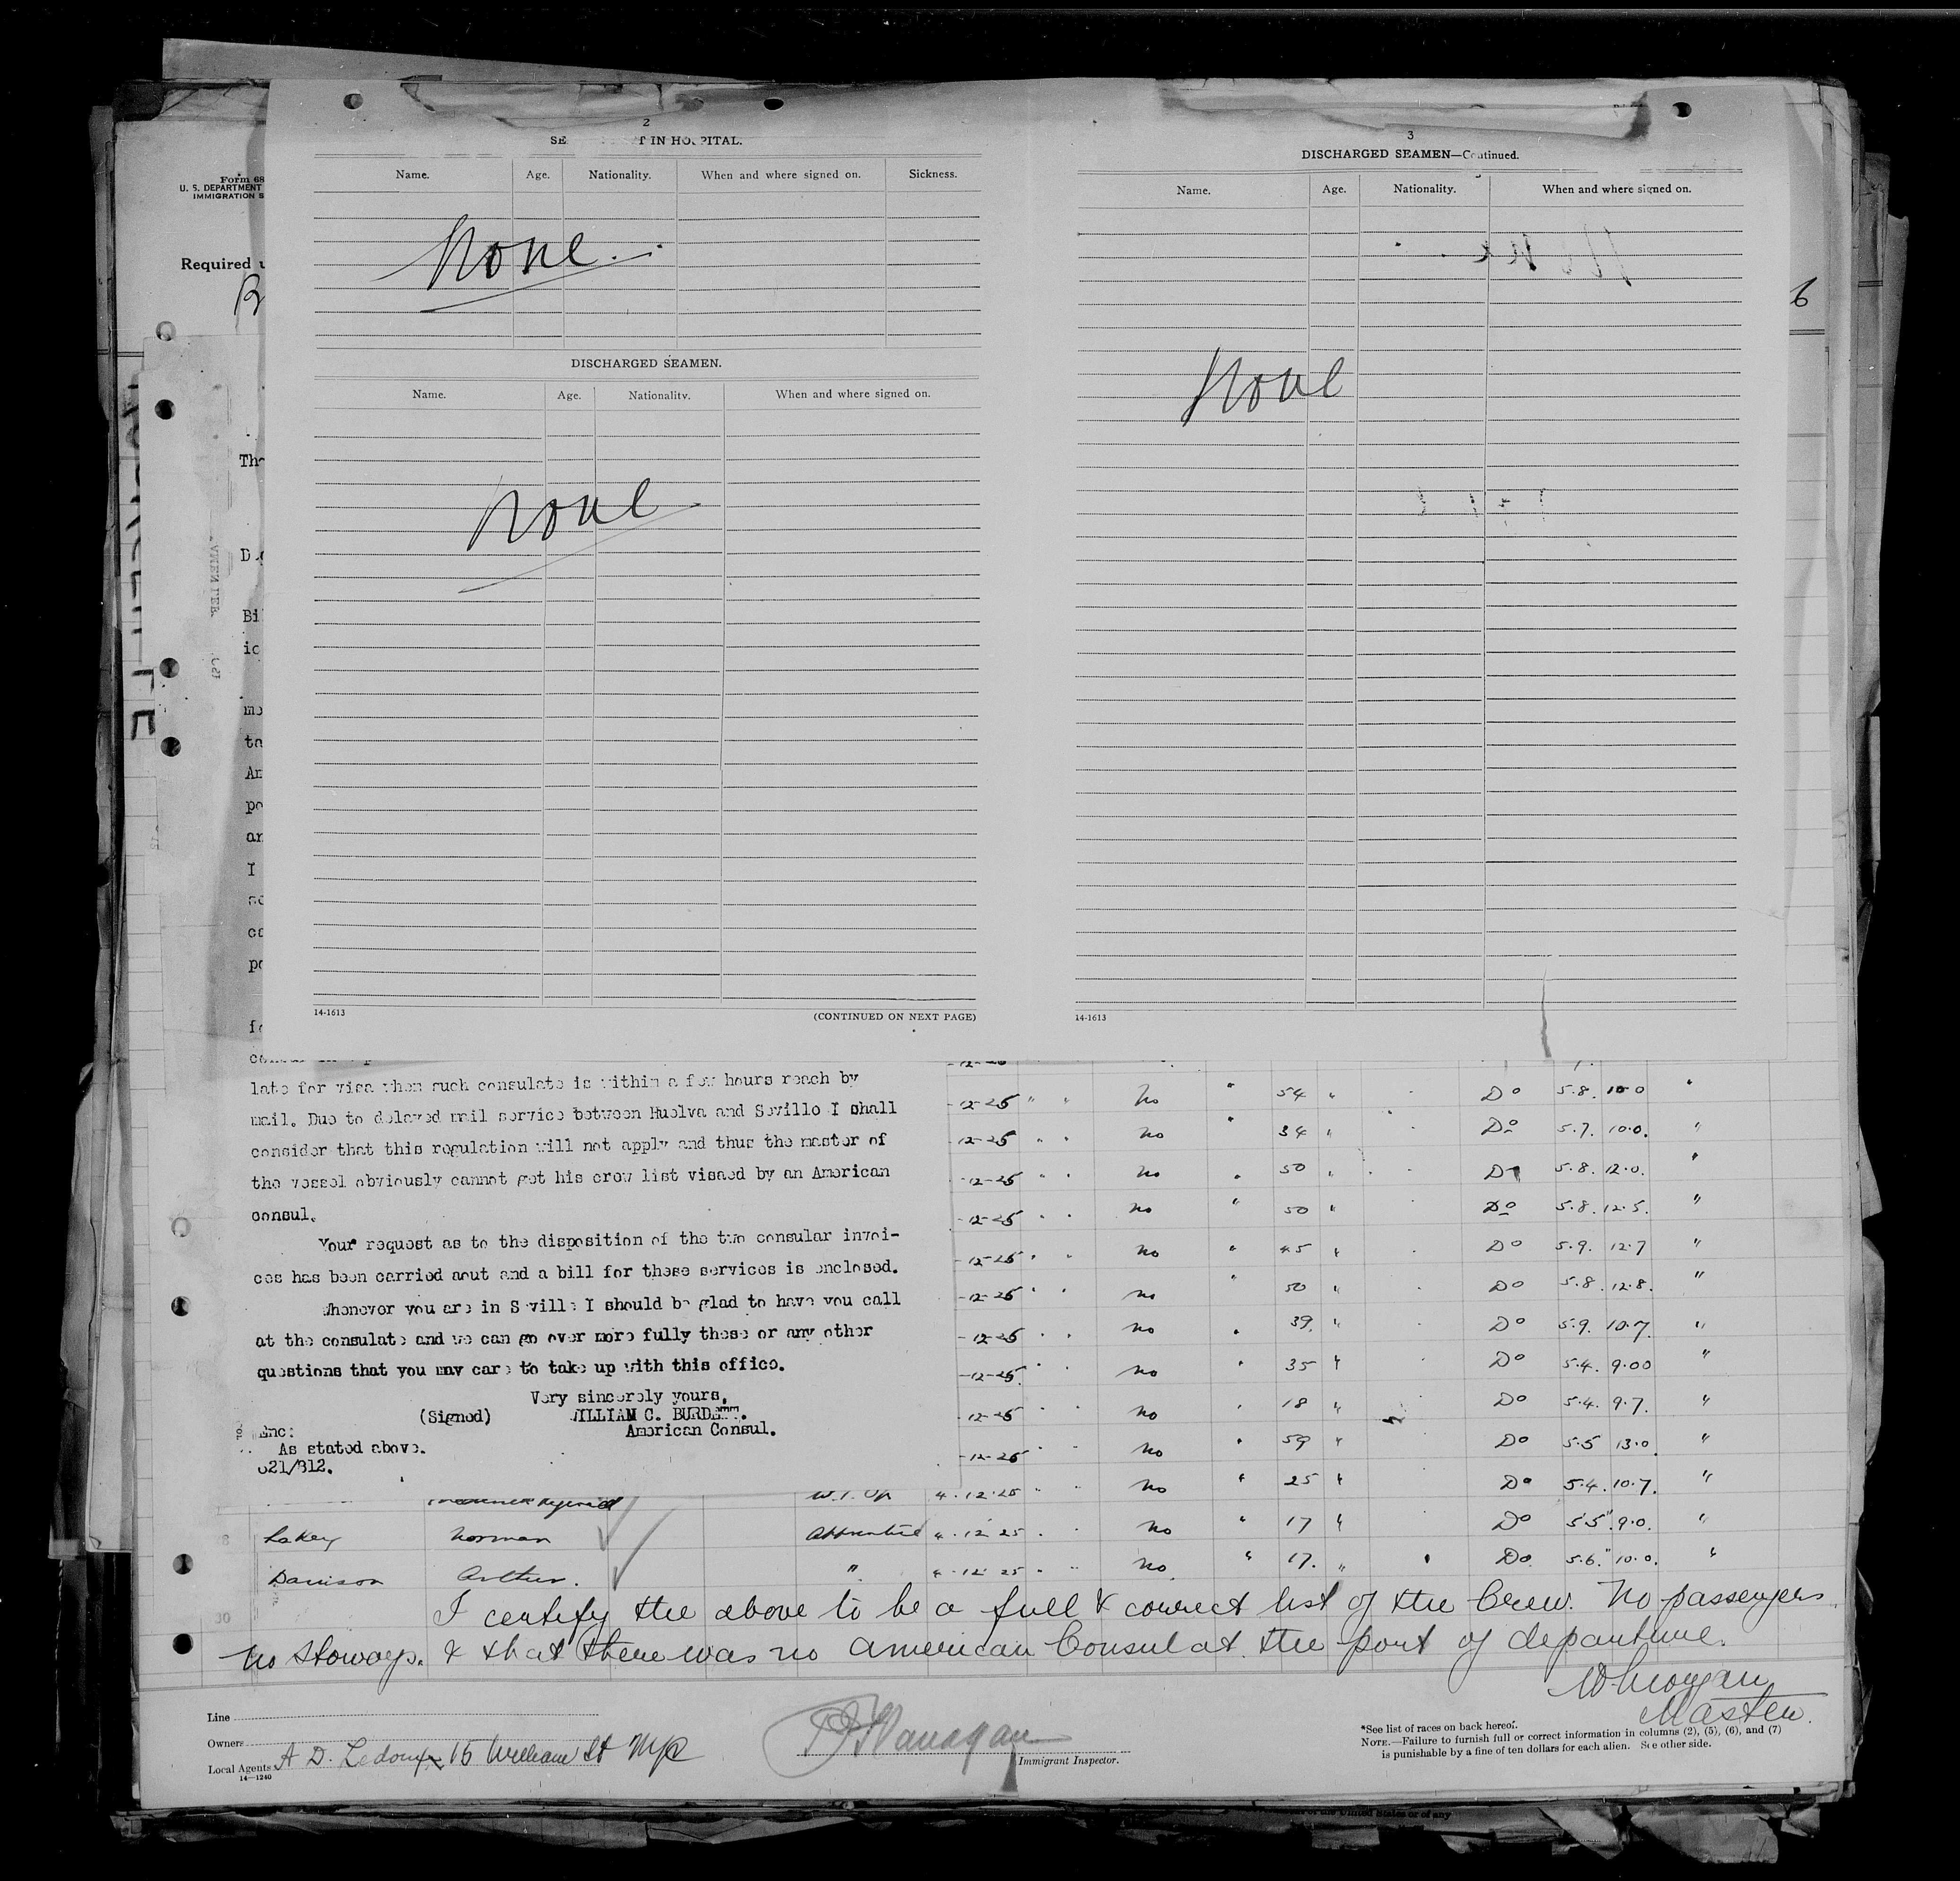 2
IN HOSPITAL.
Name. Age. Nationality. When and where signed on. Sickness.
None.
DISCHARGED SEAMEN.
Name. Age. Nationality. When and where signed on.
None
14-1613 (CONTINUED ON NEXT PAGE)
3
DISCHARGED SEAMEN—Continued.
Name. Age. Nationality. When and where signed on.
None
14-1613
Form 68
U. S. DEPARTMENT
IMMIGRATION S
Required u
6
Tho
Bi
ic
mo
to
Am
po
an
I
co
po
late for visa when such consulate is within a few hours reach by
mail. Due to delayed mail service between Huelva and Seville I shall
consider that this regulation will not apply and thus the master of
the vessel obviously cannot get his crew list visaed by an American
consul.
Your request as to the disposition of the two consular invoi-
ces has been carried aout and a bill for these services is enclosed.
Whenever you are in Seville I should be glad to have you call
at the consulate and we can go over more fully these or any other
questions that you may care to take up with this office.
Very sincerely yours,
(Signed) WILLIAM C. BURDETT.
American Consul.
Enc:
As stated above.
621/812.
-12-25 " " No " 54 " Do 5.8. 10-0 "
-12-25 " " No " 34 " Do 5.7. 10.0. "
-12-25 " " No " 50 " Do 5.8. 12.0. "
-12-25 " " No " 50 " Do 5.8. 12.5. "
-12-25 " " No " 45 " Do 5.9. 12.7 "
-12-25 " " No " 50 " Do 5.8 12.8. "
-12-25 " " No " 39. " Do 5.9. 10.7. "
-12-25. " " No " 35 " Do 5.4. 9.00 "
-12-25 " " No " 18 " Do 5.4. 9.7. "
-12-25 " " No " 59 " Do 5.5 13.0. "
W.T. Op 4.12.25 " " No " 25 " Do 5.4. 10.7. "
8 Lakey Norman Apprentice 4.12.25 " " No " 17 " Do 5.5". 9.0. "
Davison Arthur. " 4.12.25 " " No " 17. " Do. 5.6." 10.0. "
30 I certify the above to be a full & correct list of the Crew. No passengers
No Stoways. & that there was no American Consul at the port of departure.
W Morgan
Master.
Line
Owners
Local Agents A D. Ledoux 15 William St
14—1240
Flanagan
Immigrant Inspector.
*See list of races on back hereof.
NOTE.—Failure to furnish full or correct information in columns (2), (5), (6), and (7)
is punishable by a fine of ten dollars for each alien. See other side.
of the United States or of any